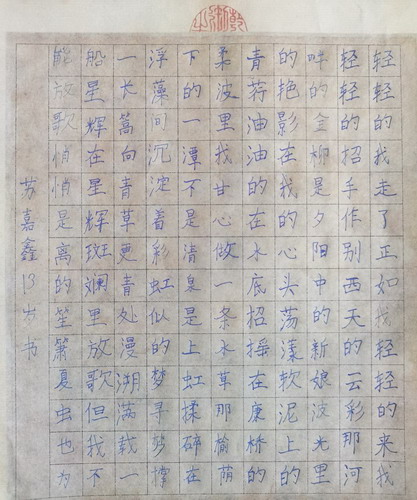 轻轻的我走了正如我轻轻的来我
轻轻的招手作别西天的云彩那河
畔的金柳是夕阳中的新娘波光里
的艳影在我的心头荡漾软泥上的
青荇油油的在水底招摇在康桥的
柔波里我甘心做一条水草那榆荫
下的一潭不是清泉是上虹揉碎在
浮藻间沉淀着彩虹似的梦寻梦撑
一长篙向青草更青处漫溯满载一
船星辉在星辉斑斓里放歌但我不
能放歌悄悄是离的笙箫夏虫也为
苏嘉鑫13岁书